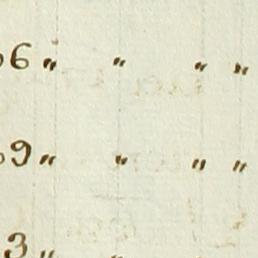 6 " " " "
9 " " " "
3 " " "